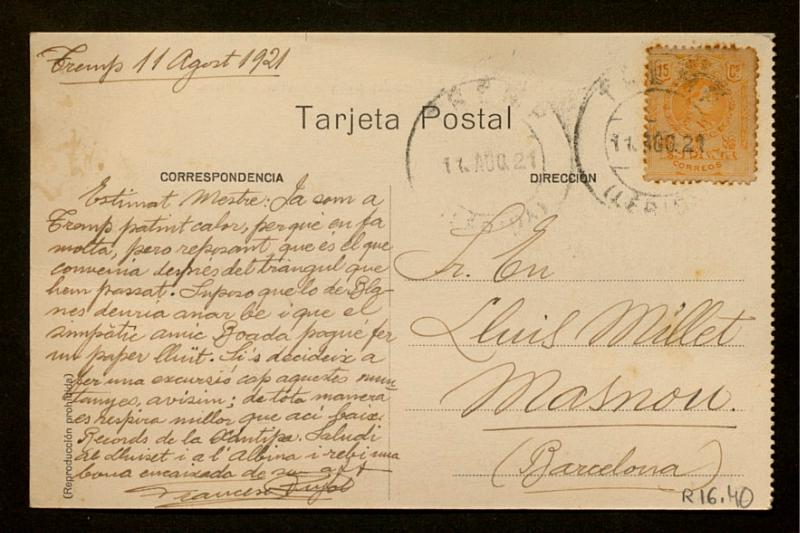 Tremp 11 Agost 1921
15 Cs
CORREOS
11 AGO.21
11 AGO.21
Tarjeta Postal
CORRESPONDENCIA
DIRECCIÓN
Estimat Mestre: Ja som a
Tremp patint calor, perque en fa
molta, pero reposant que és el que
convenia després del tràngul que
hem passat. Suposo que lo de Bla-
nes deuria anar bé i que el
simpàtic amic Boada pogué fer
un paper lluit. Si's decideix a
fer una excursió cap aquestes mun-
tanyes, avisim; de tota manera
es respira millor que ací baix.
Records de la Xantipa. Saludi
al Lluiset i a l'Albina i rebi una
bona encaixada de
Francesc Pujol
Sr. En
Lluis Millet
Masnou.
(Barcelona)
(Reproducción prohibida)
R16.40